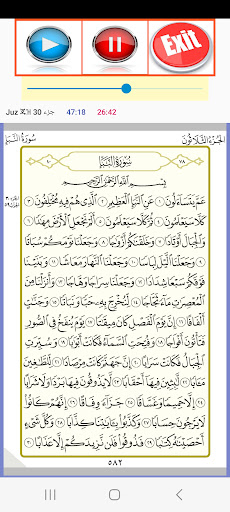 Exit
Juz 30 جزء 47:18 26:42
سُورَةُ النَّبَإِ الجُزْءُ الثَّلَاثُونَ
٤٠ سُورَةُ النَّبَإِ ٧٨
بِسْمِ ٱللَّهِ ٱلرَّحْمَٰنِ ٱلرَّحِيمِ
عَمَّ يَتَسَآءَلُونَ ١ عَنِ ٱلنَّبَإِ ٱلْعَظِيمِ ٢ ٱلَّذِى هُمْ فِيهِ مُخْتَلِفُونَ ٣
كَلَّا سَيَعْلَمُونَ ٤ ثُمَّ كَلَّا سَيَعْلَمُونَ ٥ أَلَمْ نَجْعَلِ ٱلْأَرْضَ مِهَٰدًا ٦
وَٱلْجِبَالَ أَوْتَادًا ٧ وَخَلَقْنَٰكُمْ أَزْوَٰجًا ٨ وَجَعَلْنَا نَوْمَكُمْ سُبَاتًا
٩ وَجَعَلْنَا ٱلَّيْلَ لِبَاسًا ١٠ وَجَعَلْنَا ٱلنَّهَارَ مَعَاشًا ١١ وَبَنَيْنَا
فَوْقَكُمْ سَبْعًا شِدَادًا ١٢ وَجَعَلْنَا سِرَاجًا وَهَّاجًا ١٣ وَأَنزَلْنَا مِنَ
ٱلْمُعْصِرَٰتِ مَآءً ثَجَّاجًا ١٤ لِّنُخْرِجَ بِهِۦ حَبًّا وَنَبَاتًا ١٥ وَجَنَّٰتٍ
أَلْفَافًا ١٦ إِنَّ يَوْمَ ٱلْفَصْلِ كَانَ مِيقَٰتًا ١٧ يَوْمَ يُنفَخُ فِى ٱلصُّورِ
فَتَأْتُونَ أَفْوَاجًا ١٨ وَفُتِحَتِ ٱلسَّمَآءُ فَكَانَتْ أَبْوَٰبًا ١٩ وَسُيِّرَتِ
ٱلْجِبَالُ فَكَانَتْ سَرَابًا ٢٠ إِنَّ جَهَنَّمَ كَانَتْ مِرْصَادًا ٢١ لِّلطَّٰغِينَ
مَـَٔابًا ٢٢ لَّٰبِثِينَ فِيهَآ أَحْقَابًا ٢٣ لَّا يَذُوقُونَ فِيهَا بَرْدًا وَلَا شَرَابًا
٢٤ إِلَّا حَمِيمًا وَغَسَّاقًا ٢٥ جَزَآءً وِفَاقًا ٢٦ إِنَّهُمْ كَانُوا۟
لَا يَرْجُونَ حِسَابًا ٢٧ وَكَذَّبُوا۟ بِـَٔايَٰتِنَا كِذَّابًا ٢٨ وَكُلَّ شَىْءٍ
أَحْصَيْنَٰهُ كِتَٰبًا ٢٩ فَذُوقُوا۟ فَلَن نَّزِيدَكُمْ إِلَّا عَذَابًا ٣٠
٥٨٢